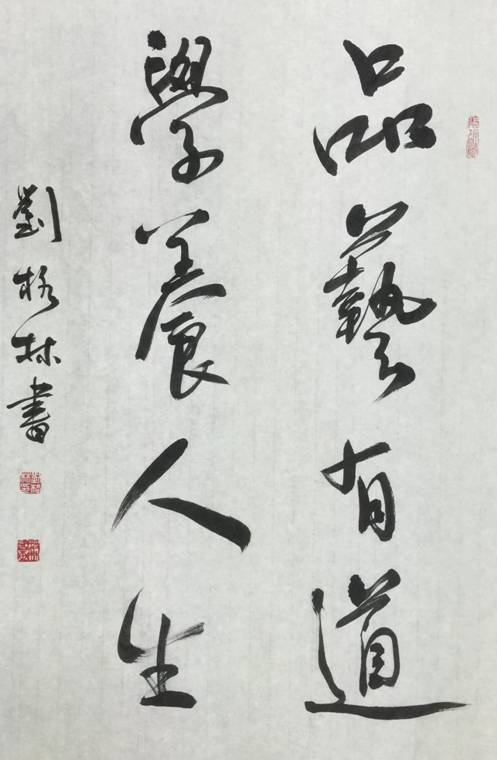 品藝有道
學養人生
劉格林書